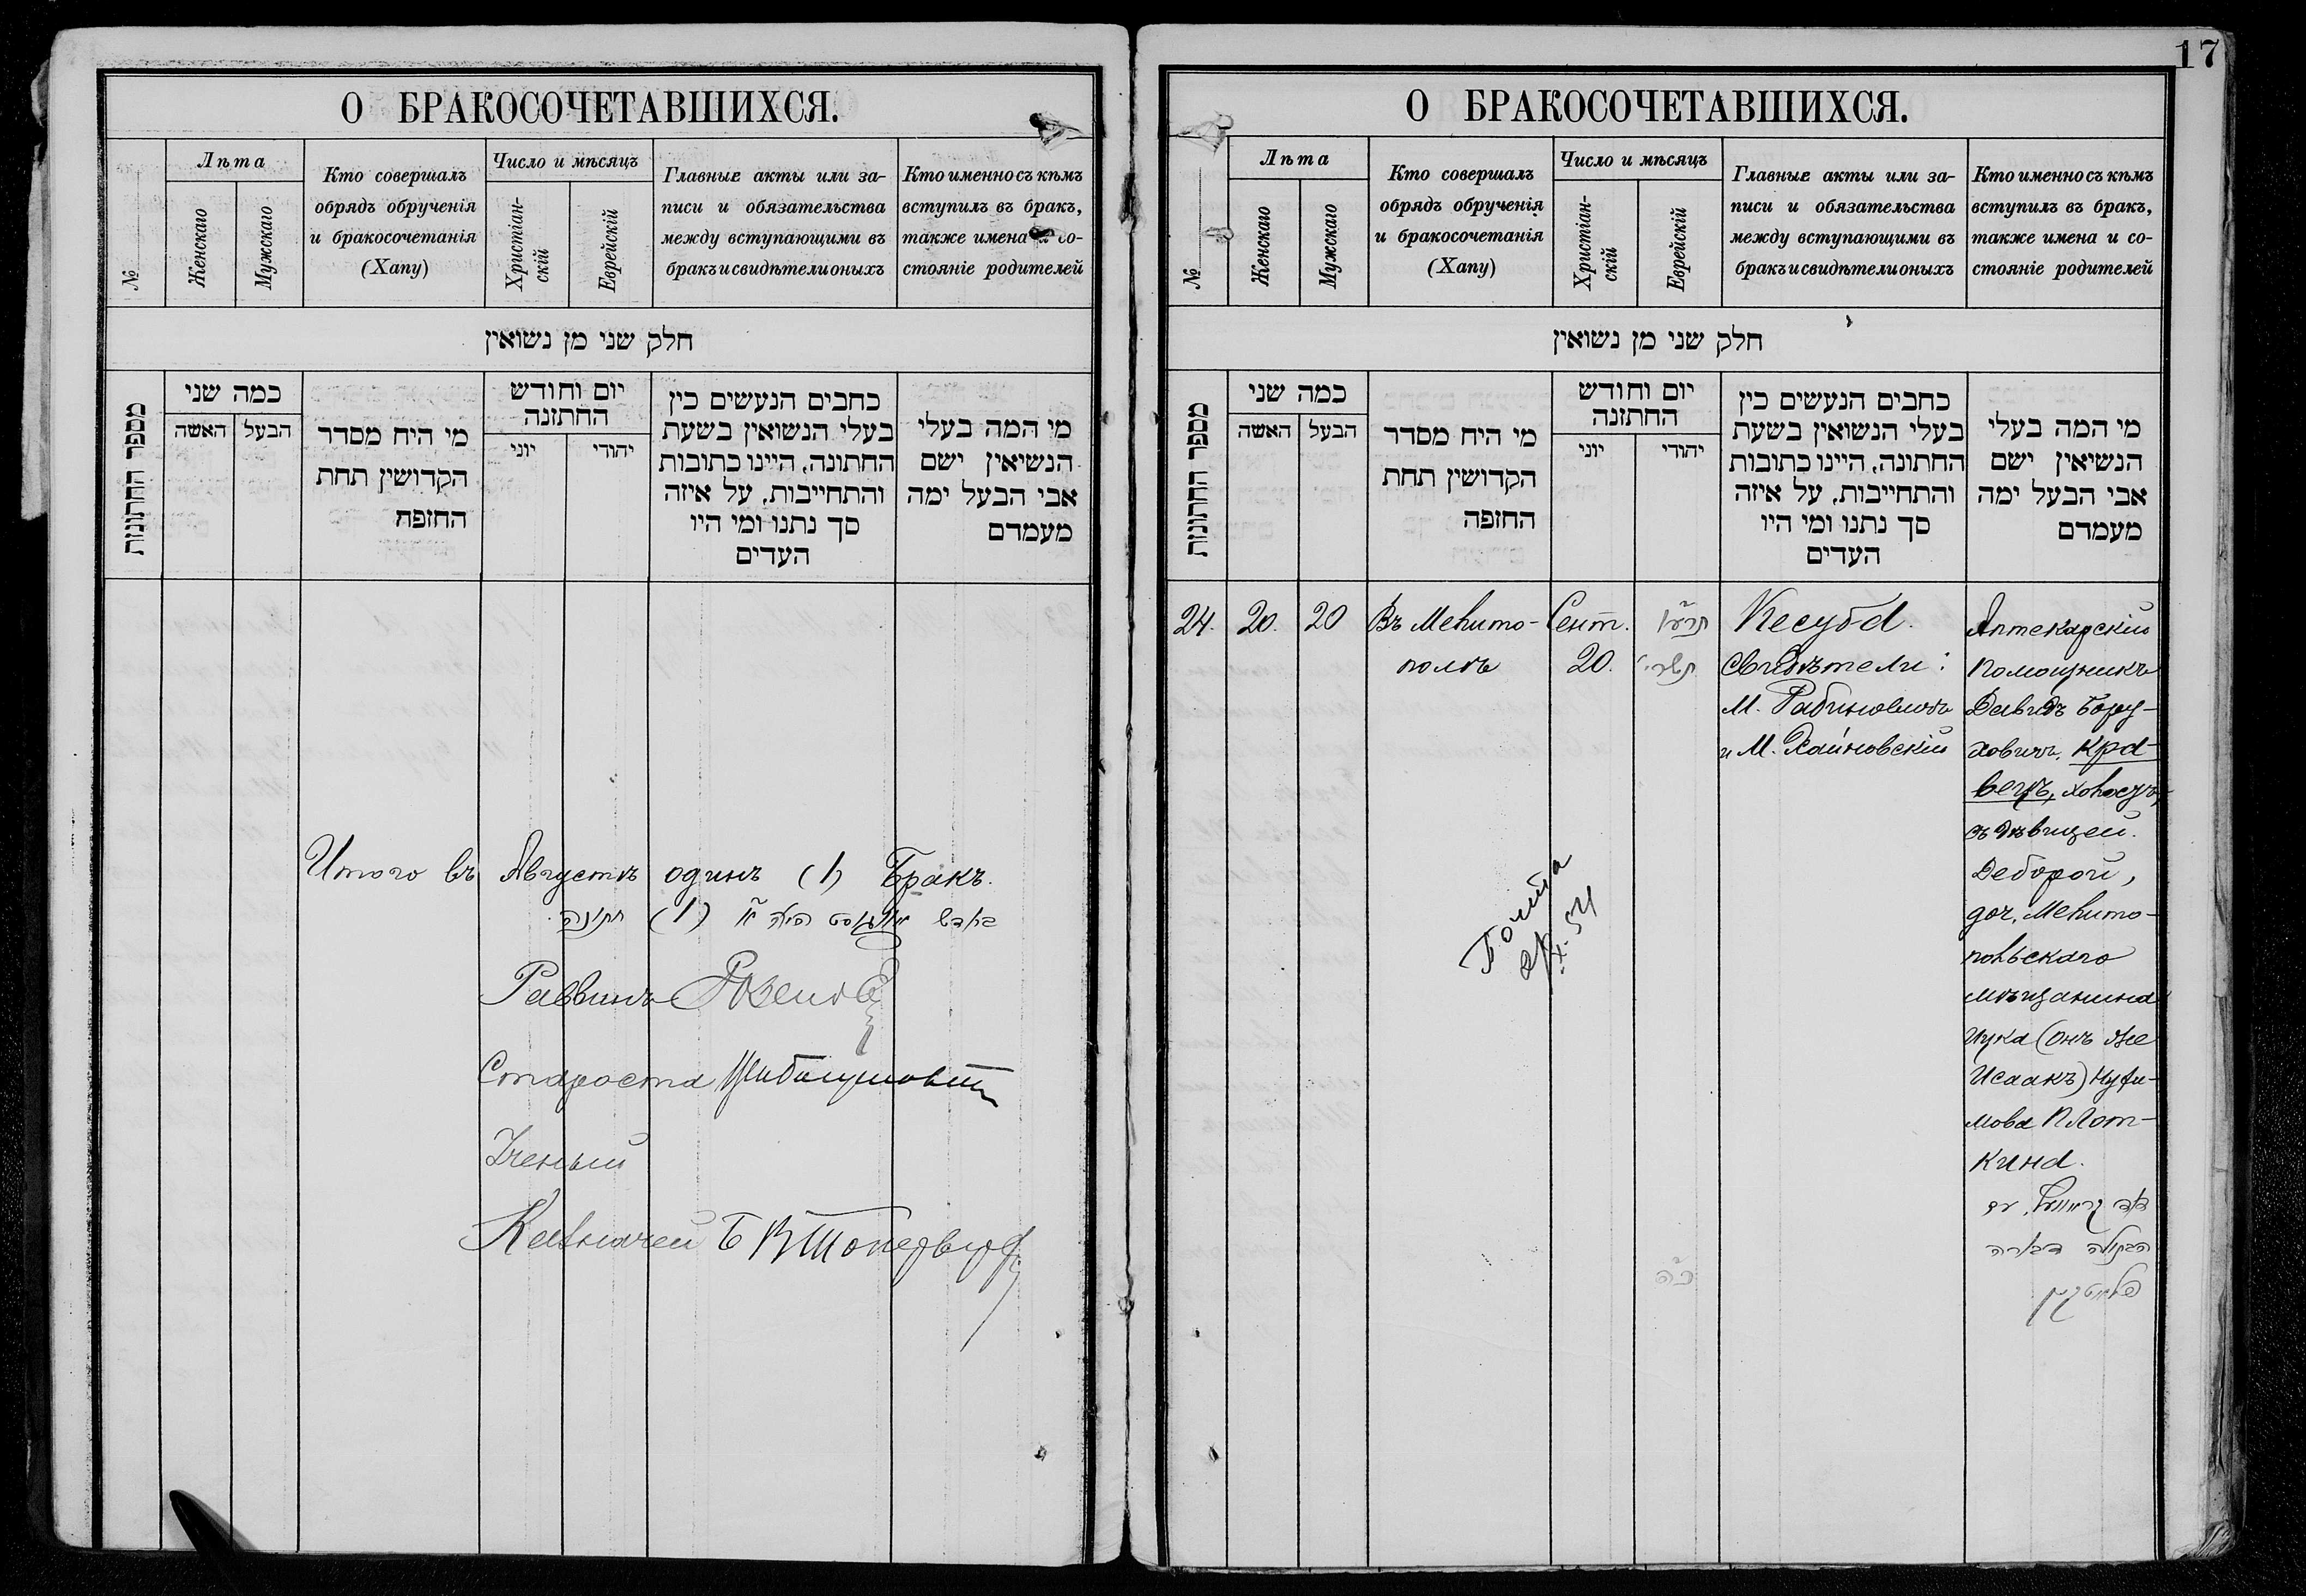 О БРАКОСОЧЕТАВШИХСЯ.
№
Лѣта
Женскаго
Мужскаго
Кто совершалъ
обрядъ обрученія
и бракосочетанія
(Хапу)
Число и мѣсяцъ
Христіан-
скій
Еврейскій
Главные акты или за-
писи и обязательства
между вступающими въ
бракъ и свидѣтели оныхъ
Кто именно съ кѣмъ
вступилъ въ бракъ,
также имена и со-
стояніе родителей
חלק שני מן נשואין
מספר החתונות
כמה שני
האשה
הבעל
מי היח מסדר
הקדושין תחת
החופה
יום וחודש
החתונה
יוני
יהודי
כחבים הנעשים כין
בעלי הנשואין בשעת
החתונה, היינו כתובות
והתחייבות, על איזה
סך נתנו ומי היו
העדים
מי המה בעלי
הנשיאין ישם
אבי הבעל ימה
מעמדם
Итого въ Августѣ одинъ (1) Бракъ.
בחדש אויגוסט היה א (1) חתונה
Раввинъ
Староста
Ученый
Казначей Б
17
О БРАКОСОЧЕТАВШИХСЯ.
№
Лѣта
Женскаго
Мужскаго
Кто совершалъ
обрядъ обрученія
и бракосочетанія
(Хапу)
Число и мѣсяцъ
Христіан-
скій
Еврейскій
Главные акты или за-
писи и обязательства
между вступающими въ
бракъ и свидѣтели оныхъ
Кто именно съ кѣмъ
вступилъ въ бракъ,
также имена и со-
стояніе родителей
חלק שני מן נשואין
מספר החתונות
כמה שני
האשה
הבעל
מי היח מסדר
הקדושין תחת
החופה
יום וחודש
החתונה
יוני
יהודי
כחבים הנעשים כין
בעלי הנשואין בשעת
החתונה, היינו כתובות
והתחייבות, על איזה
סך נתנו ומי היו
העדים
מי המה בעלי
הנשיאין ישם
אבי הבעל ימה
מעמדם
24.
20.
20
Въ Мелито-
полѣ
Сент.
20.
תשרי
Кесуба.
Свидѣтели:
М. Рабиновичъ
и М. Хайновскій
Аптекарскій
помощникъ
Давидъ Бору-
ховичъ, Кра-
вецъ, холостъ,
съ дѣвицей
Деборой,
доч. Мелито-
польскаго
мѣщанина
Ицка (онъ же
Исаакъ)
Плот-
кина.
דוד קראוועץ, עם
הבתולה דבורה
פלאטקין
כ"ה